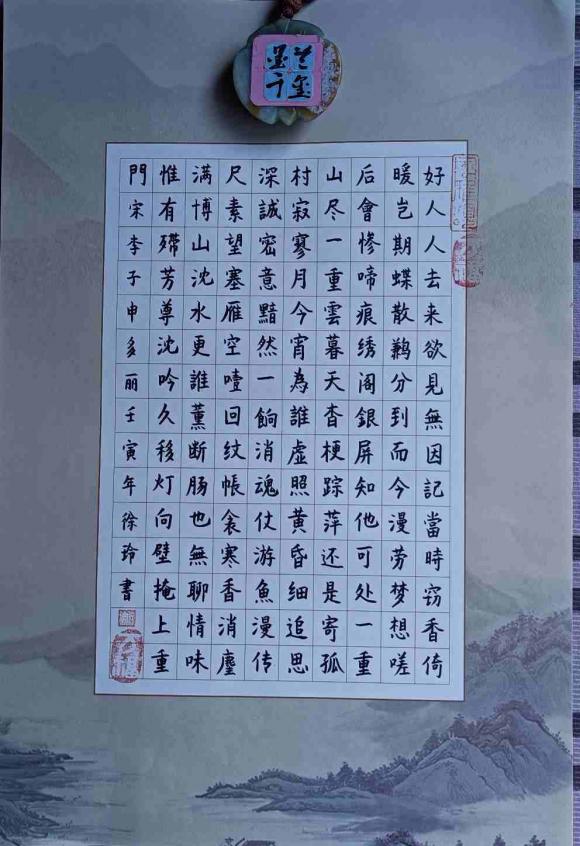 好人人去来欲見無因記當時窃香倚
暖岂期蝶散鶼分到而今漫劳梦想嗟
后會惨啼痕绣阁銀屏知他可处一重
山尽一重雲暮天杳梗踪萍还是寄孤
村寂寥月今宵為誰虚照黄昏细追思
深誠密意黯然一餉消魂仗游魚漫传
尺素望塞雁空噎回纹帳衾寒香消塵
满博山沈水更誰薰断肠也無聊情味
惟有殢芳尊沈吟久移灯向壁掩上重
門宋李子申多丽壬寅年徐玲書